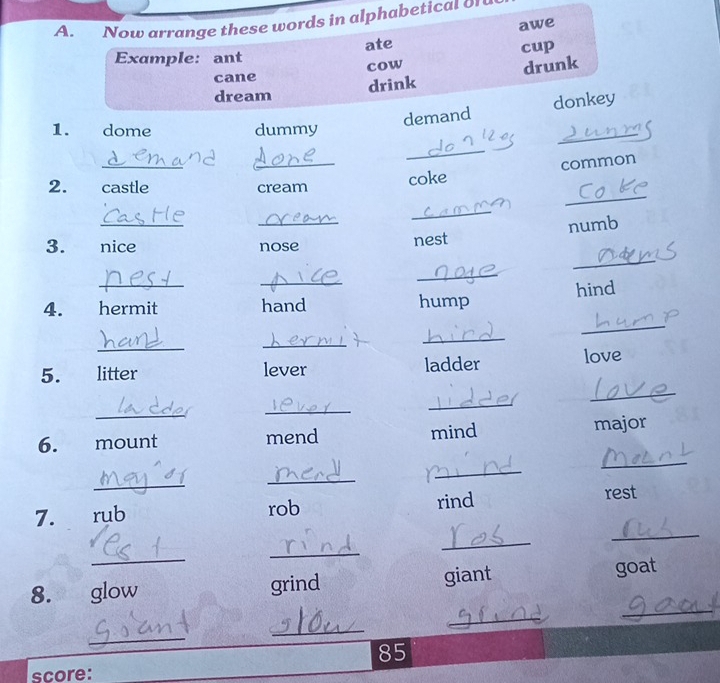 A. Now arrange these words in alphabetical
Example: ant ate awe
cane cow cup
dream drink drunk
1. dome dummy demand donkey
demand done
2. castle cream coke common
castle cream common coke
3. nice nose nest numb
nest nice nose
4. hermit hand hump hind
hand hermit hind hump
5. litter lever ladder love
ladder lever lidder love
6. mount mend mind major
major mend mind
7. rub rob rind rest
rest rind rob rub
8. glow grind giant goat
giant glow grind goat
score: 85